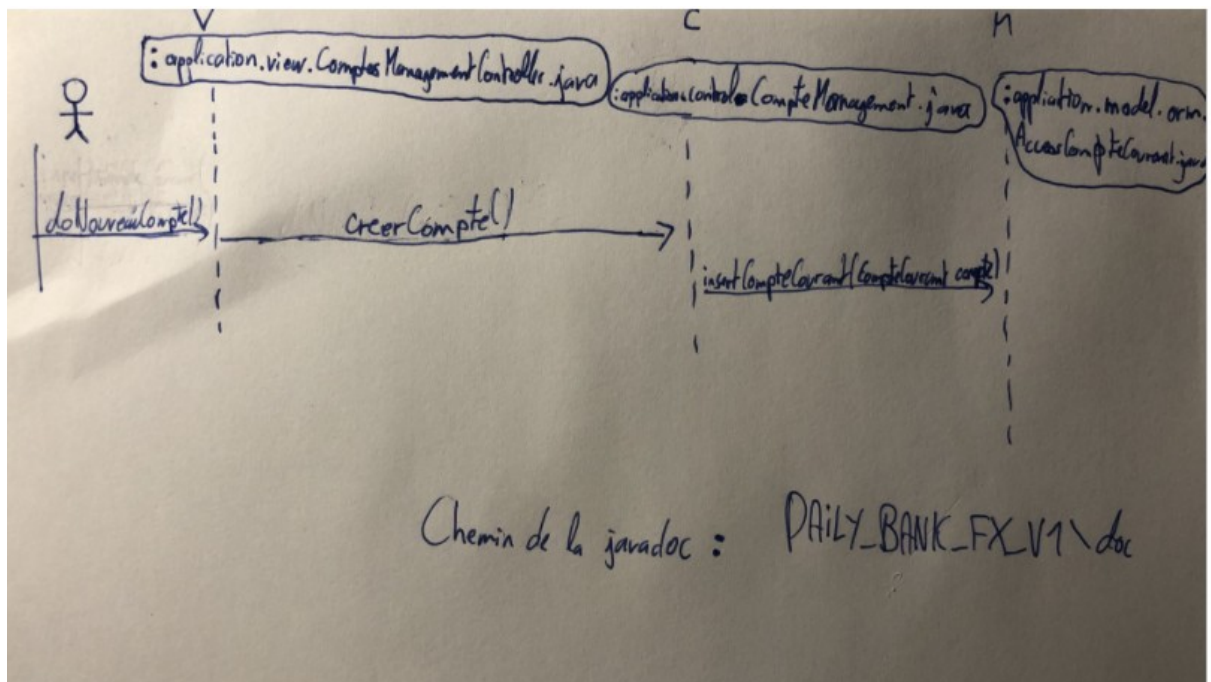 V C M
:application.view.ComptesManagementController.java
:application.control.CompteManagement.java
:application.model.orm.
AccessCompteCourant.java
doNouveauCompte()
creerCompte()
insertCompteCourant(CompteCourant compte)
Chemin de la javadoc : DAiLY_BANK_FX_V1\doc